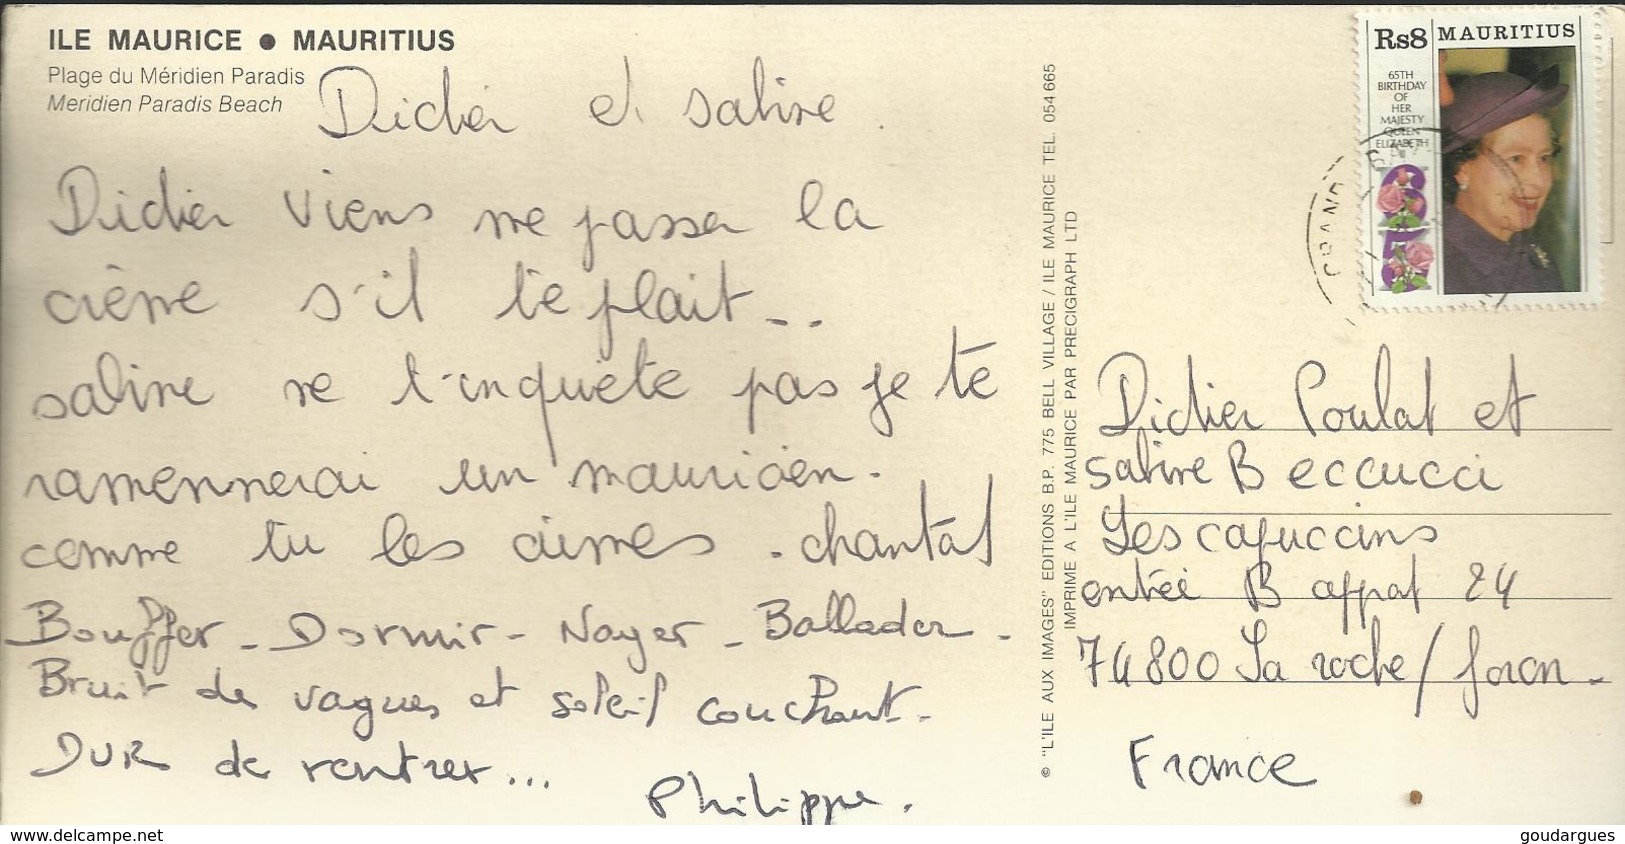 ILE MAURICE ● MAURITIUS
Plage du Méridien Paradis
Meridien Paradis Beach
Didier et sabine.
Didier viens me passer la
crème s'il te plait...
sabine ne t'inquiete pas je te
ramennerai un mauricien.
comme tu les aimes. chantal
Bouffer - Dormir - Nager - Ballader -
Bruit de vagues et soleil couchant.
DUR de rentrer...
Philippe.
© "L'ILE AUX IMAGES" EDITIONS B.P. 775 BELL VILLAGE / ILE MAURICE TEL. 054 665
IMPRIME A L'ILE MAURICE PAR PRECIGRAPH LTD
Rs8 MAURITIUS
65TH
BIRTHDAY
OF
HER
MAJESTY
QUEEN
ELIZABETH
GRAND BAY
Didier Poulat et
sabine Beccucci
Les capuccins
entrée B appat 24
74800 La roche/foron.
France
www.delcampe.net
goudargues